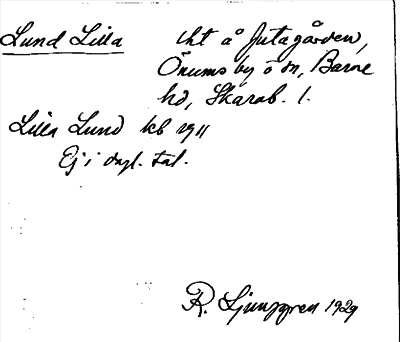 Lund Lilla tht å Jutagården,
Önums by o sn, Barne
hd, Skarab. l.
Lilla Lund kb 1911
Ej i dagl. tal.
R. Ljunggren 1929